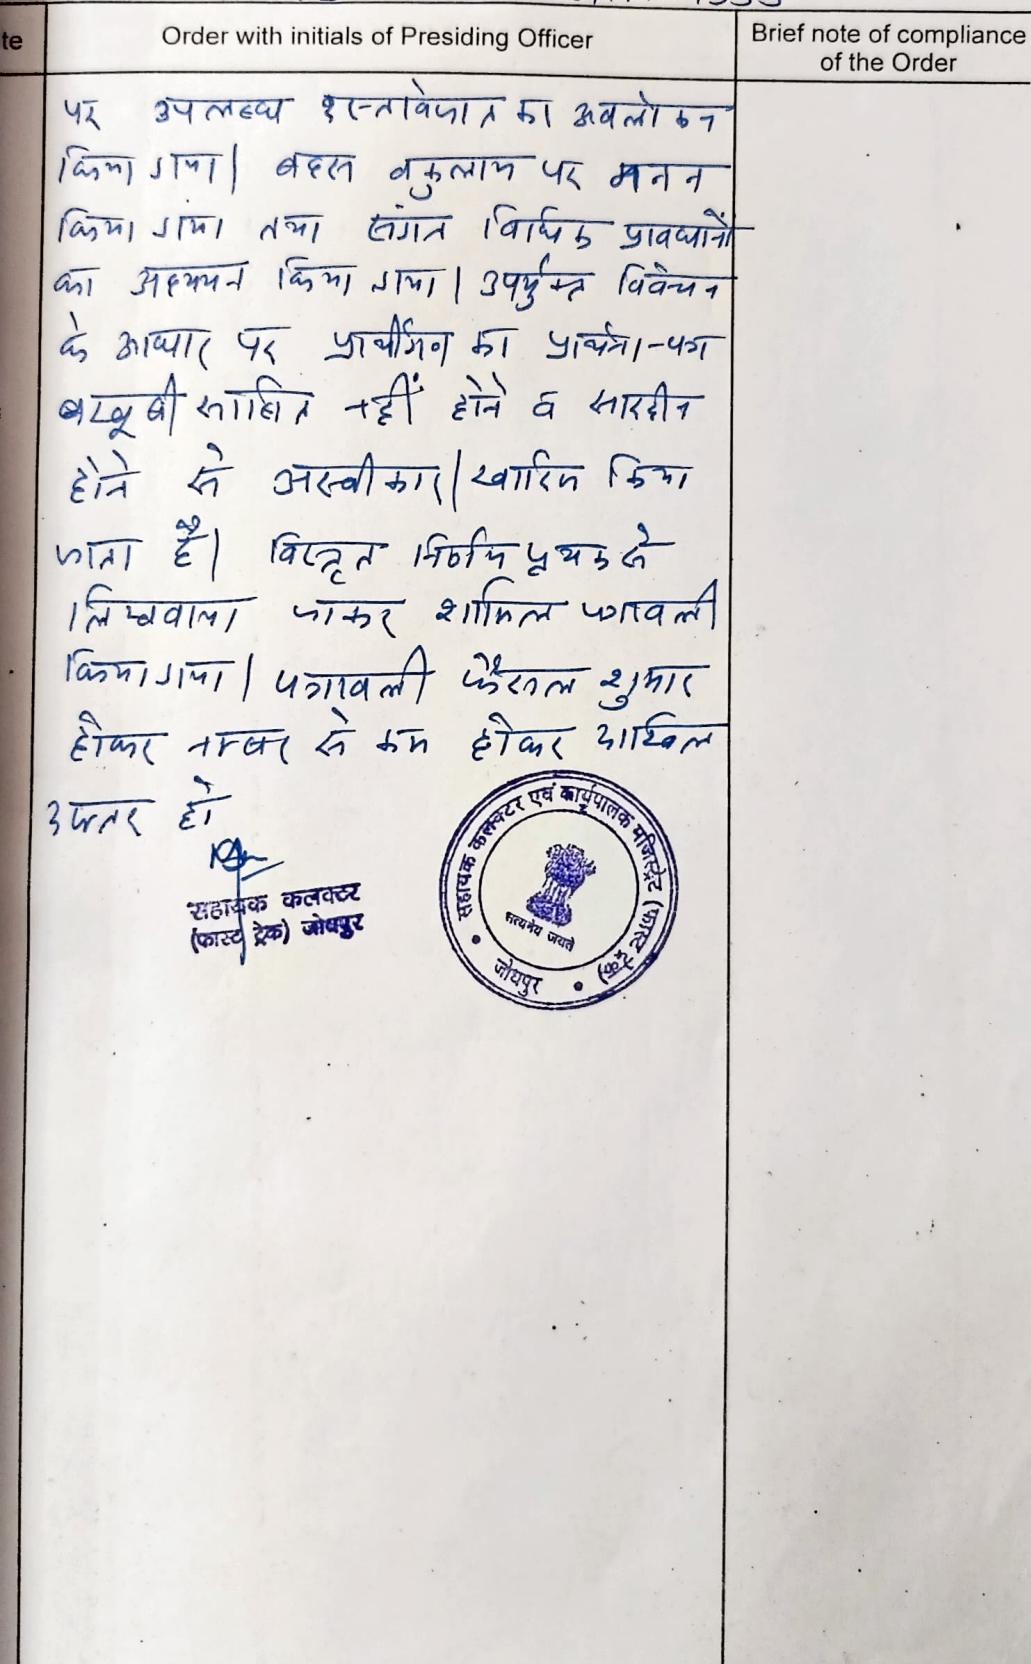 te
Order with initials of Presiding Officer
Brief note of compliance
of the Order
पर उपलब्ध दस्तावेजात का अवलोकन
किया गया। बहस वकुलाय पर मनन
किया गया तथा संगत विधिक प्रावधानों
का अध्ययन किया गया। उपर्युक्त विवेचन
के आधार पर प्रार्थीगण का प्रार्थना-पत्र
बखूबी साबित नहीं होने व सारहीन
होने से अस्वीकार/खारिज किया
जाता है। विस्तृत निर्णय पृथक से
लिखवाया जाकर शामिल पत्रावली
किया गया। पत्रावली फैसल शुमार
होकर नम्बर से कम होकर दाखिल
दफ्तर हो
सहायक कलक्टर
(फास्ट ट्रेक) जोधपुर
सहायक कलक्टर एवं कार्यपालक मजिस्ट्रेट (फास्ट ट्रेक)
सत्यमेव जयते
जोधपुर